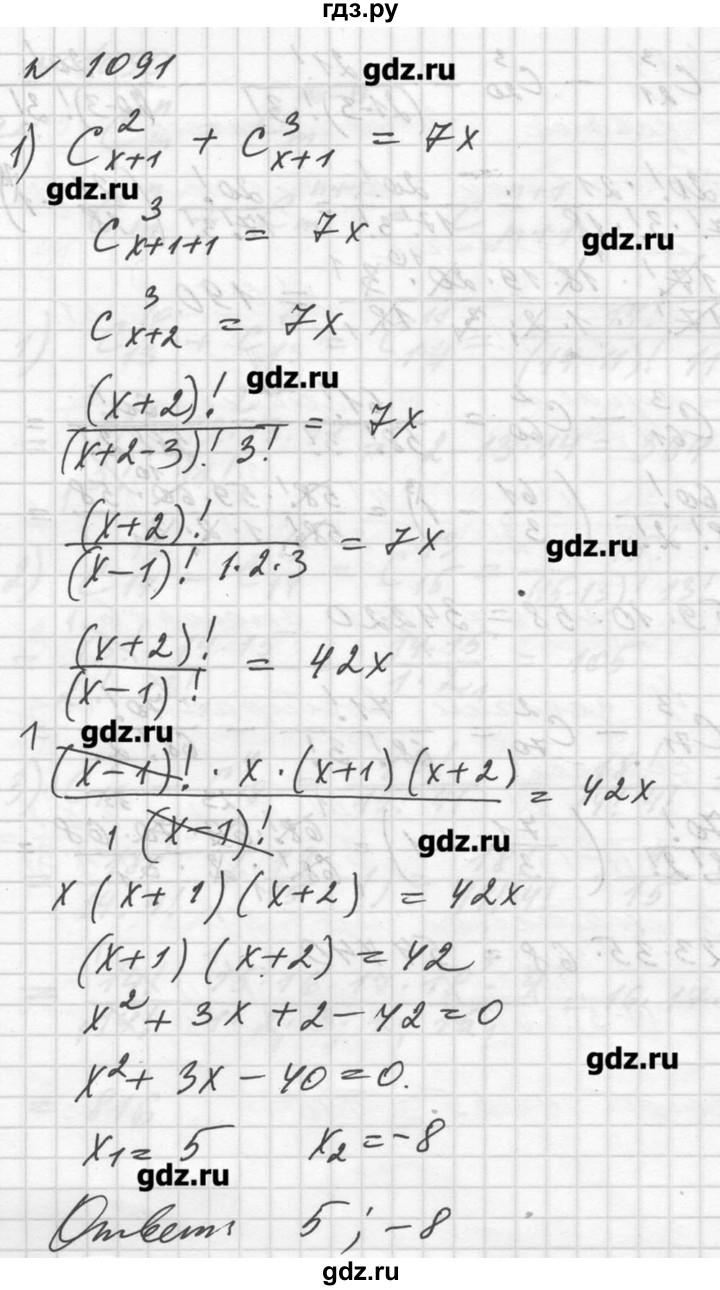 гдз.ру
№ 1091
gdz.ru
1) C²ₓ₊₁ + C³ₓ₊₁ = 7x
gdz.ru
C³ₓ₊₁₊₁ = 7x
gdz.ru
C³ₓ₊₂ = 7x
gdz.ru
(x+2)! / (x+2-3)! 3! = 7x
(x+2)! / (x-1)! 1·2·3 = 7x
gdz.ru
(x+2)! / (x-1)! = 42x
gdz.ru
1 (x-1)! · x · (x+1)(x+2) / 1 (x-1)! = 42x
gdz.ru
x(x+1)(x+2) = 42x
(x+1)(x+2) = 42
x² + 3x + 2 - 42 = 0
gdz.ru
x² + 3x - 40 = 0.
x₁ = 5 x₂ = -8
gdz.ru
Ответ: 5; -8
gdz.ru